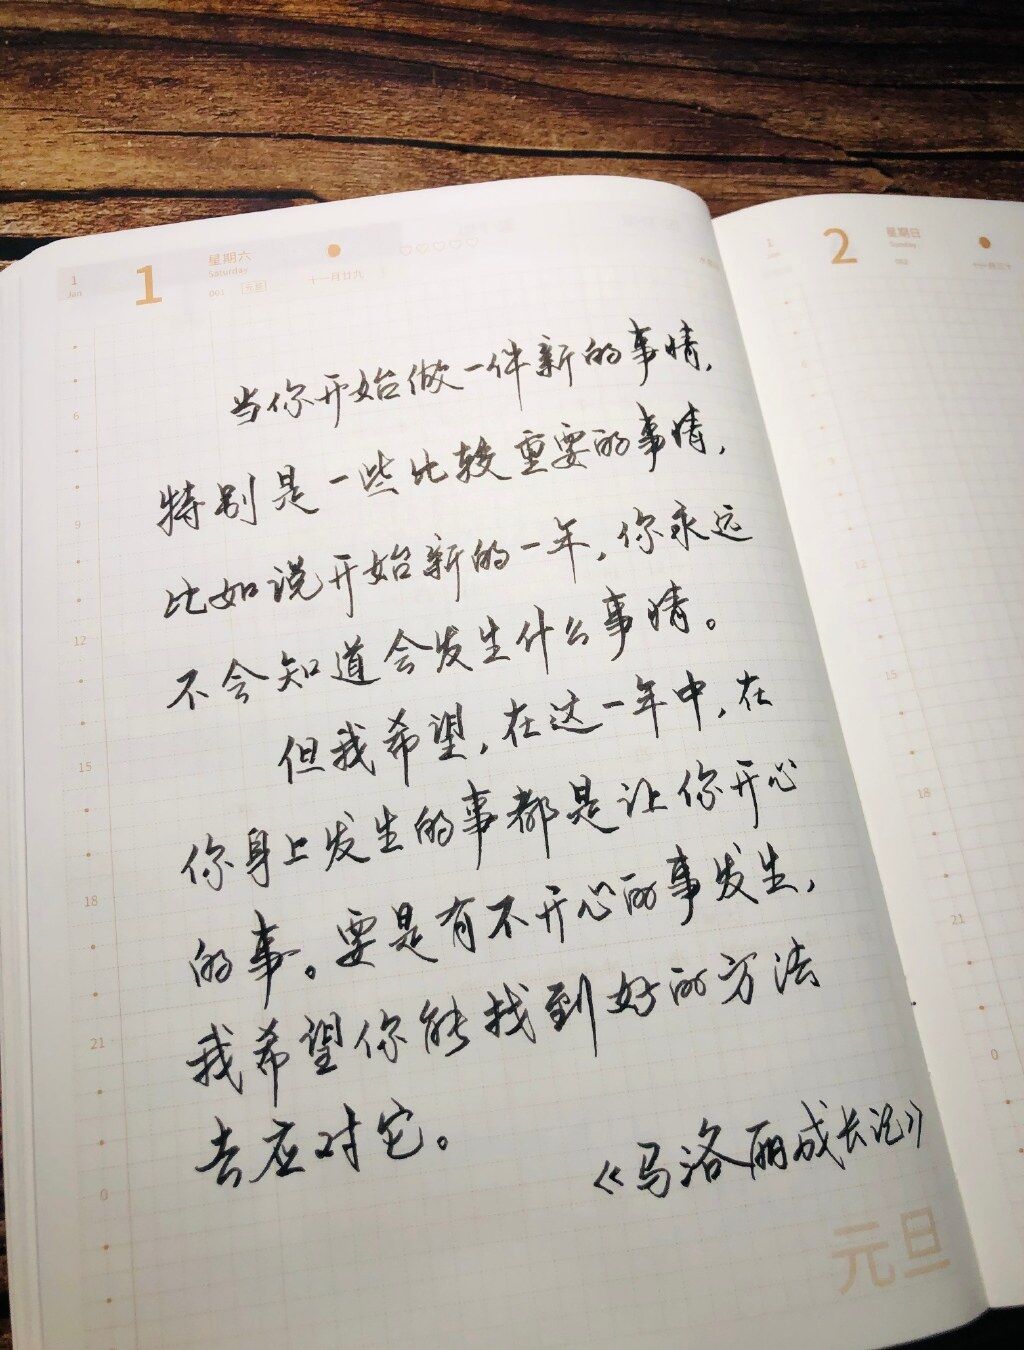 1
Jan
1
星期六
Saturday
001 元旦
十一月廿九
当你开始做一件新的事情,
特别是一些比较重要的事情,
比如说开始新的一年,你永远
不会知道会发生什么事情。
但我希望,在这一年中,在
你身上发生的事都是让你开心
的事。要是有不开心的事发生,
我希望你能找到好的方法
去应对它。
《马洛丽成长记》
元旦
6
9
12
15
18
21
0
1
2
星期日
Sunday
002
12
15
18
21
0